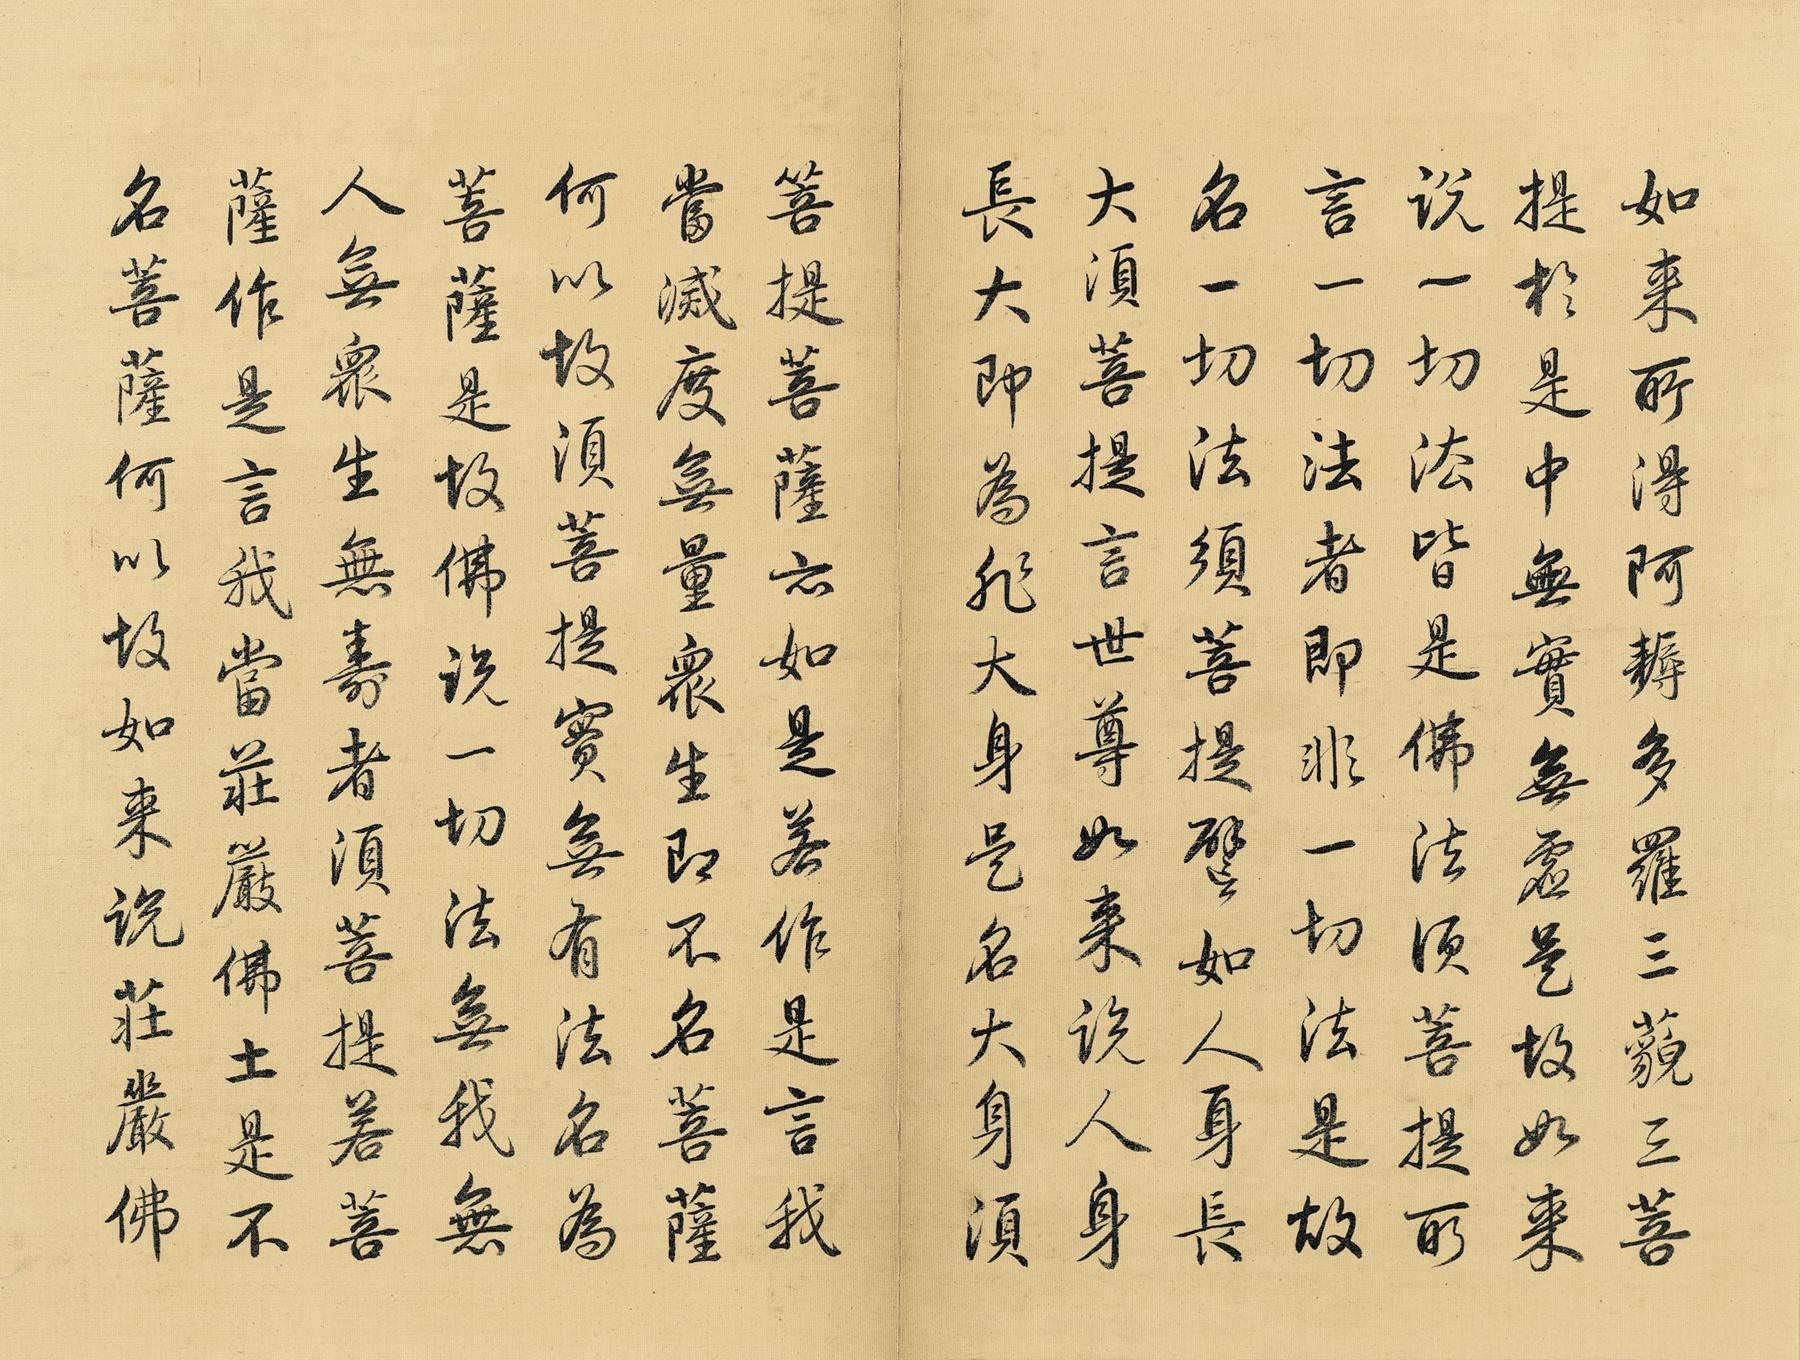 如来所得阿耨多羅三藐三菩
提於是中無實無虛是故如来
說一切法皆是佛法須菩提所
言一切法者即非一切法是故
名一切法須菩提譬如人身長
大須菩提言世尊如来說人身
長大即為非大身是名大身須
菩提菩薩亦如是若作是言我
當滅度無量眾生即不名菩薩
何以故須菩提實無有法名為
菩薩是故佛說一切法無我無
人無眾生無壽者須菩提若菩
薩作是言我當莊嚴佛土是不
名菩薩何以故如来說莊嚴佛